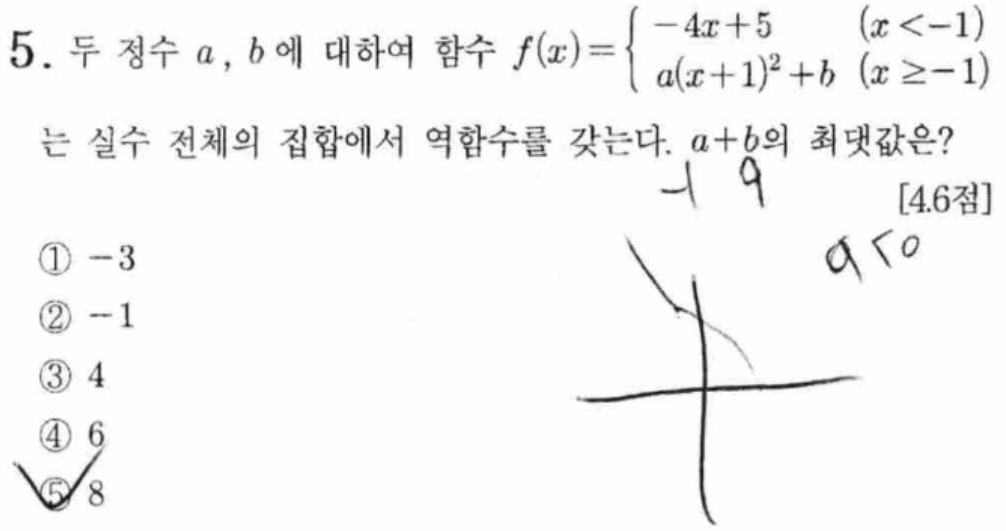 5. 두 정수 a, b에 대하여 함수 f(x)={ -4x+5 (x<-1)
a(x+1)²+b (x≥-1)
는 실수 전체의 집합에서 역함수를 갖는다. a+b의 최댓값은?
-1 9
[4.6점]
a<0
① -3
② -1
③ 4
④ 6
⑤ 8